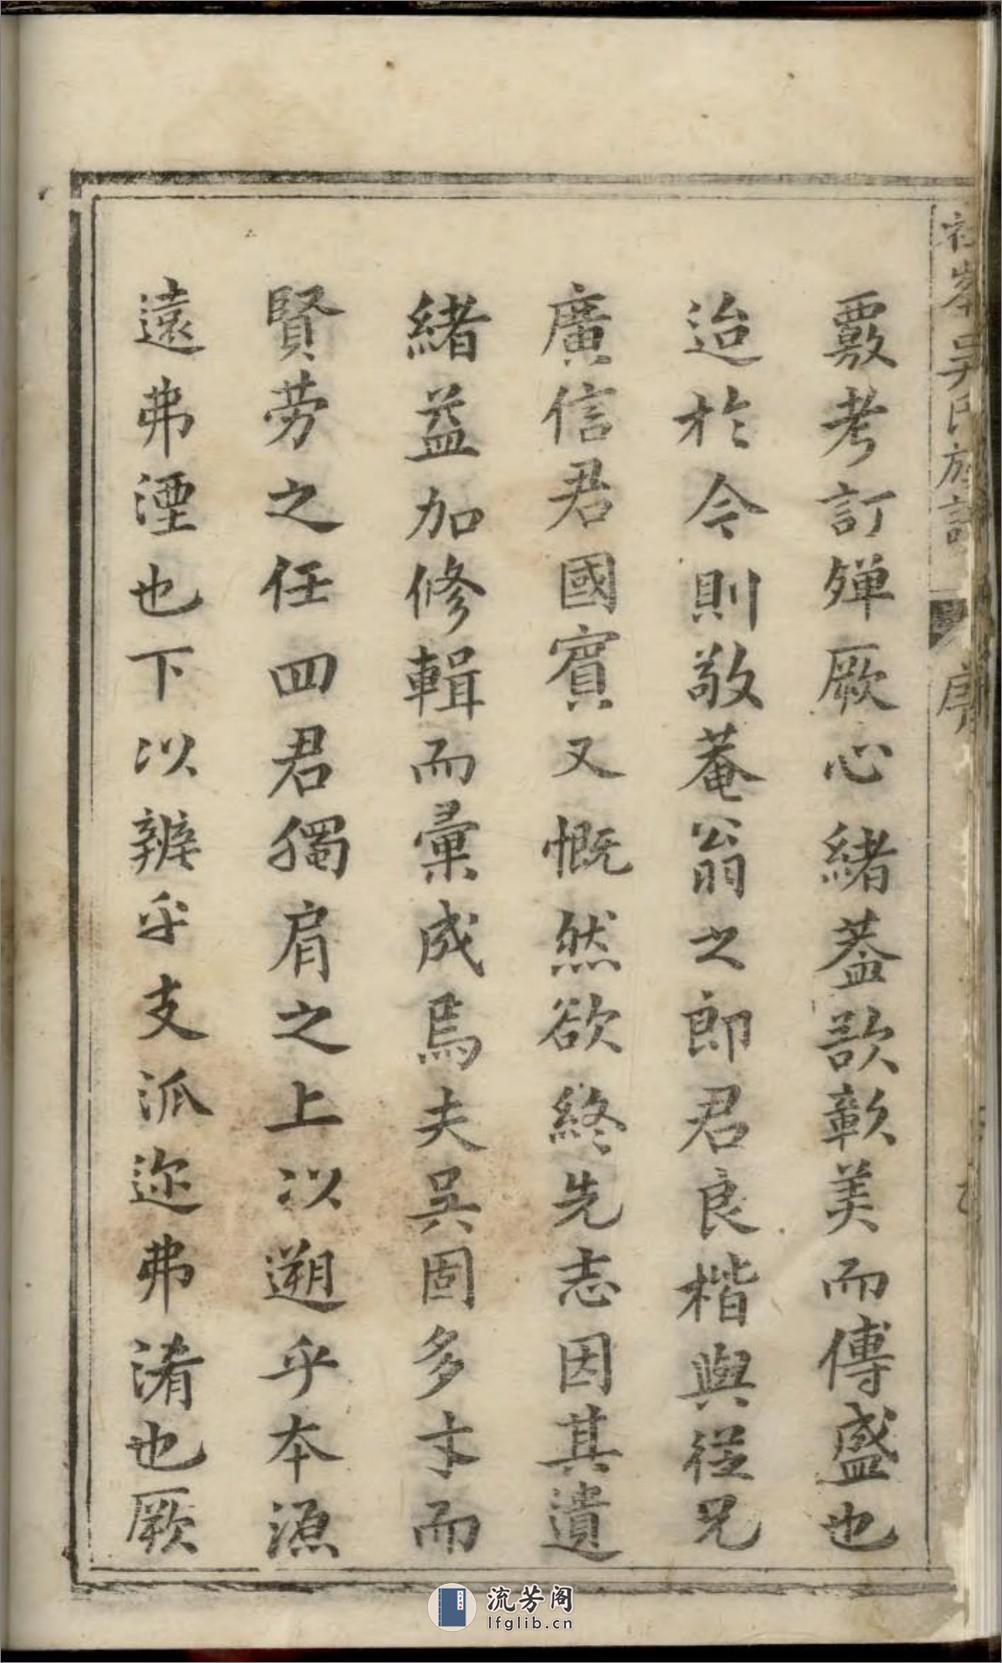 覈考訂殫厥心緒葢欲彰美而傳盛也
迨於今則敬菴翁之郎君良楷與從兄
廣信君國賓又慨然欲終先志因其遺
緒益加修輯而彙成焉夫吳固多卞而
賢劳之任四君獨肩之上以遡乎本源
遠弗湮也下以辨乎支派迩弗淆也厥
吳氏族譜 序
流芳阁
lfglib.cn